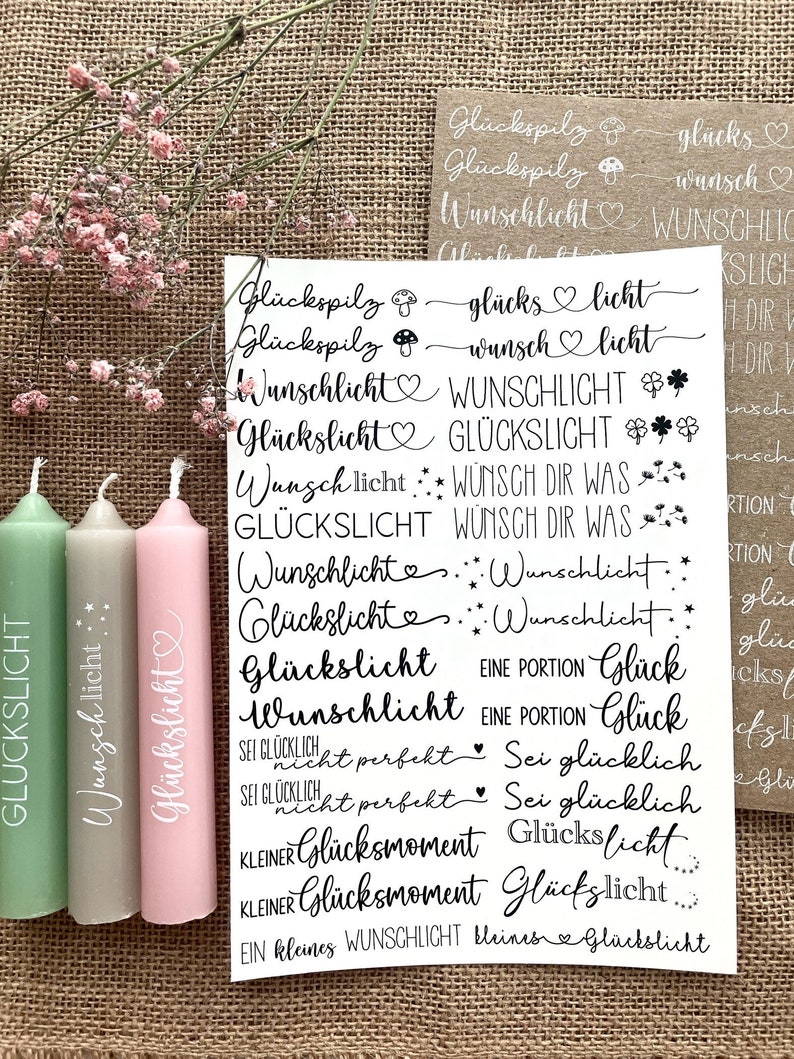 Glückspilz glücks licht
Glückspilz wunsch licht
Wunschlicht WUNSCHLICHT
Glückslicht GLÜCKSLICHT
Wunschlicht WÜNSCH DIR WAS
GLÜCKSLICHT WÜNSCH DIR WAS
Wunschlicht Wunschlicht
Glückslicht Wunschlicht
Glückslicht EINE PORTION Glück
Wunschlicht EINE PORTION Glück
SEI GLÜCKLICH nicht perfekt Sei glücklich
SEI GLÜCKLICH nicht perfekt Sei glücklich
KLEINER Glücksmoment Glückslicht
KLEINER Glücksmoment Glückslicht
EIN kleines WUNSCHLICHT kleines Glückslicht
GLÜCKSLICHT
Wunschlicht
Glückslicht
Glückspilz glücks
Glückspilz wunsch
Wunschlicht WUNSCHLIC